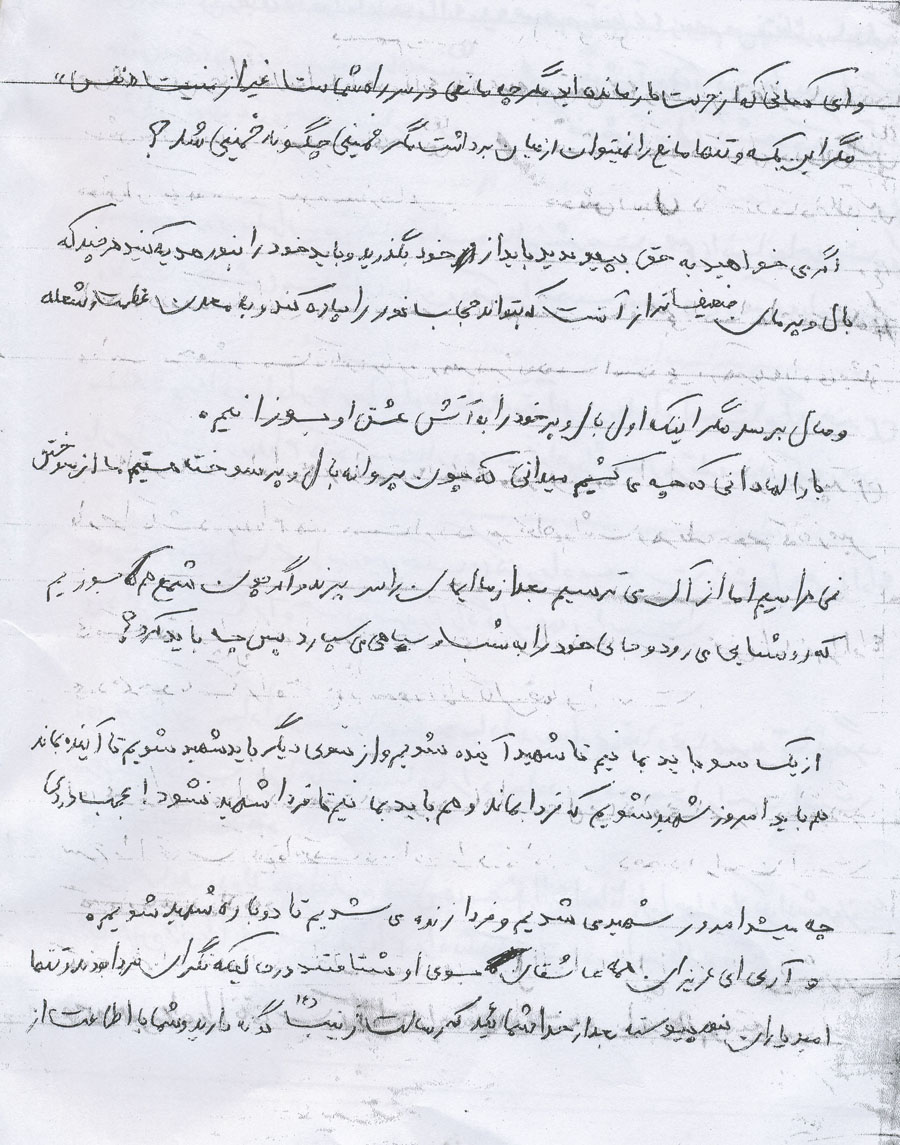 وای کسانی که از حرکت بازمانده اید مگر چه مانعی در سر راه شماست غیر از منیت و نفس
مگر این یکه و تنها مانع را نمیتوان از میان برداشت مگر خمینی چگونه خمینی شد ؟
اگر می خواهید به حق بپیوندید باید از خود بگذرید و باید خود را بنور هدیه کنید هر چند که
بال و پرمان ضعیفتر از آنست که بتواند حجاب نور را پاره کند و به معدن عظمت و شعله
وصال برسد مگر اینکه اول بال و پر خود را به آتش عشق او بسوزانیم .
بارالها دانی که چه می کشیم میدانی که چون پروانه بال و پر سوخته هستیم ما از سوختن
نمی هراسیم اما از آن می ترسیم بعد از ما ایمان را سر ببرند و اگر چون شمع هم بسوزیم
که روشنایی می رود و جای خود را به شب و سیاهی می سپارد پس چه باید کرد ؟
از یک سو باید بمانیم تا شهید آینده شویم و از سوی دیگر باید شهید شویم تا آینده بماند
هم باید امروز شهید شویم که فردا بماند و هم باید بمانیم تا فردا شهید نشود ! عجب دردی
چه میشد امروز شهید می شدیم و فردا زنده می شدیم تا دوباره شهید شویم .
آری ای عزیزان همه عاشقان بسوی او شتافتند در حالیکه نگران فردا بودند و تنها
امید یاران بنور پیوسته بعد از خدا شمائید که رسالت زینب گونه دارید و شما با اطاعت از